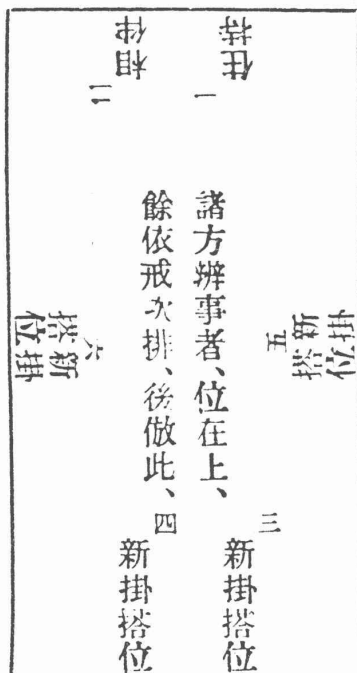 住持
一
相伴
二
諸方辦事者、位在上、
餘依戒次排、後倣此、
新掛搭位
五
新掛搭位
六
三
新掛搭位
四
新掛搭位